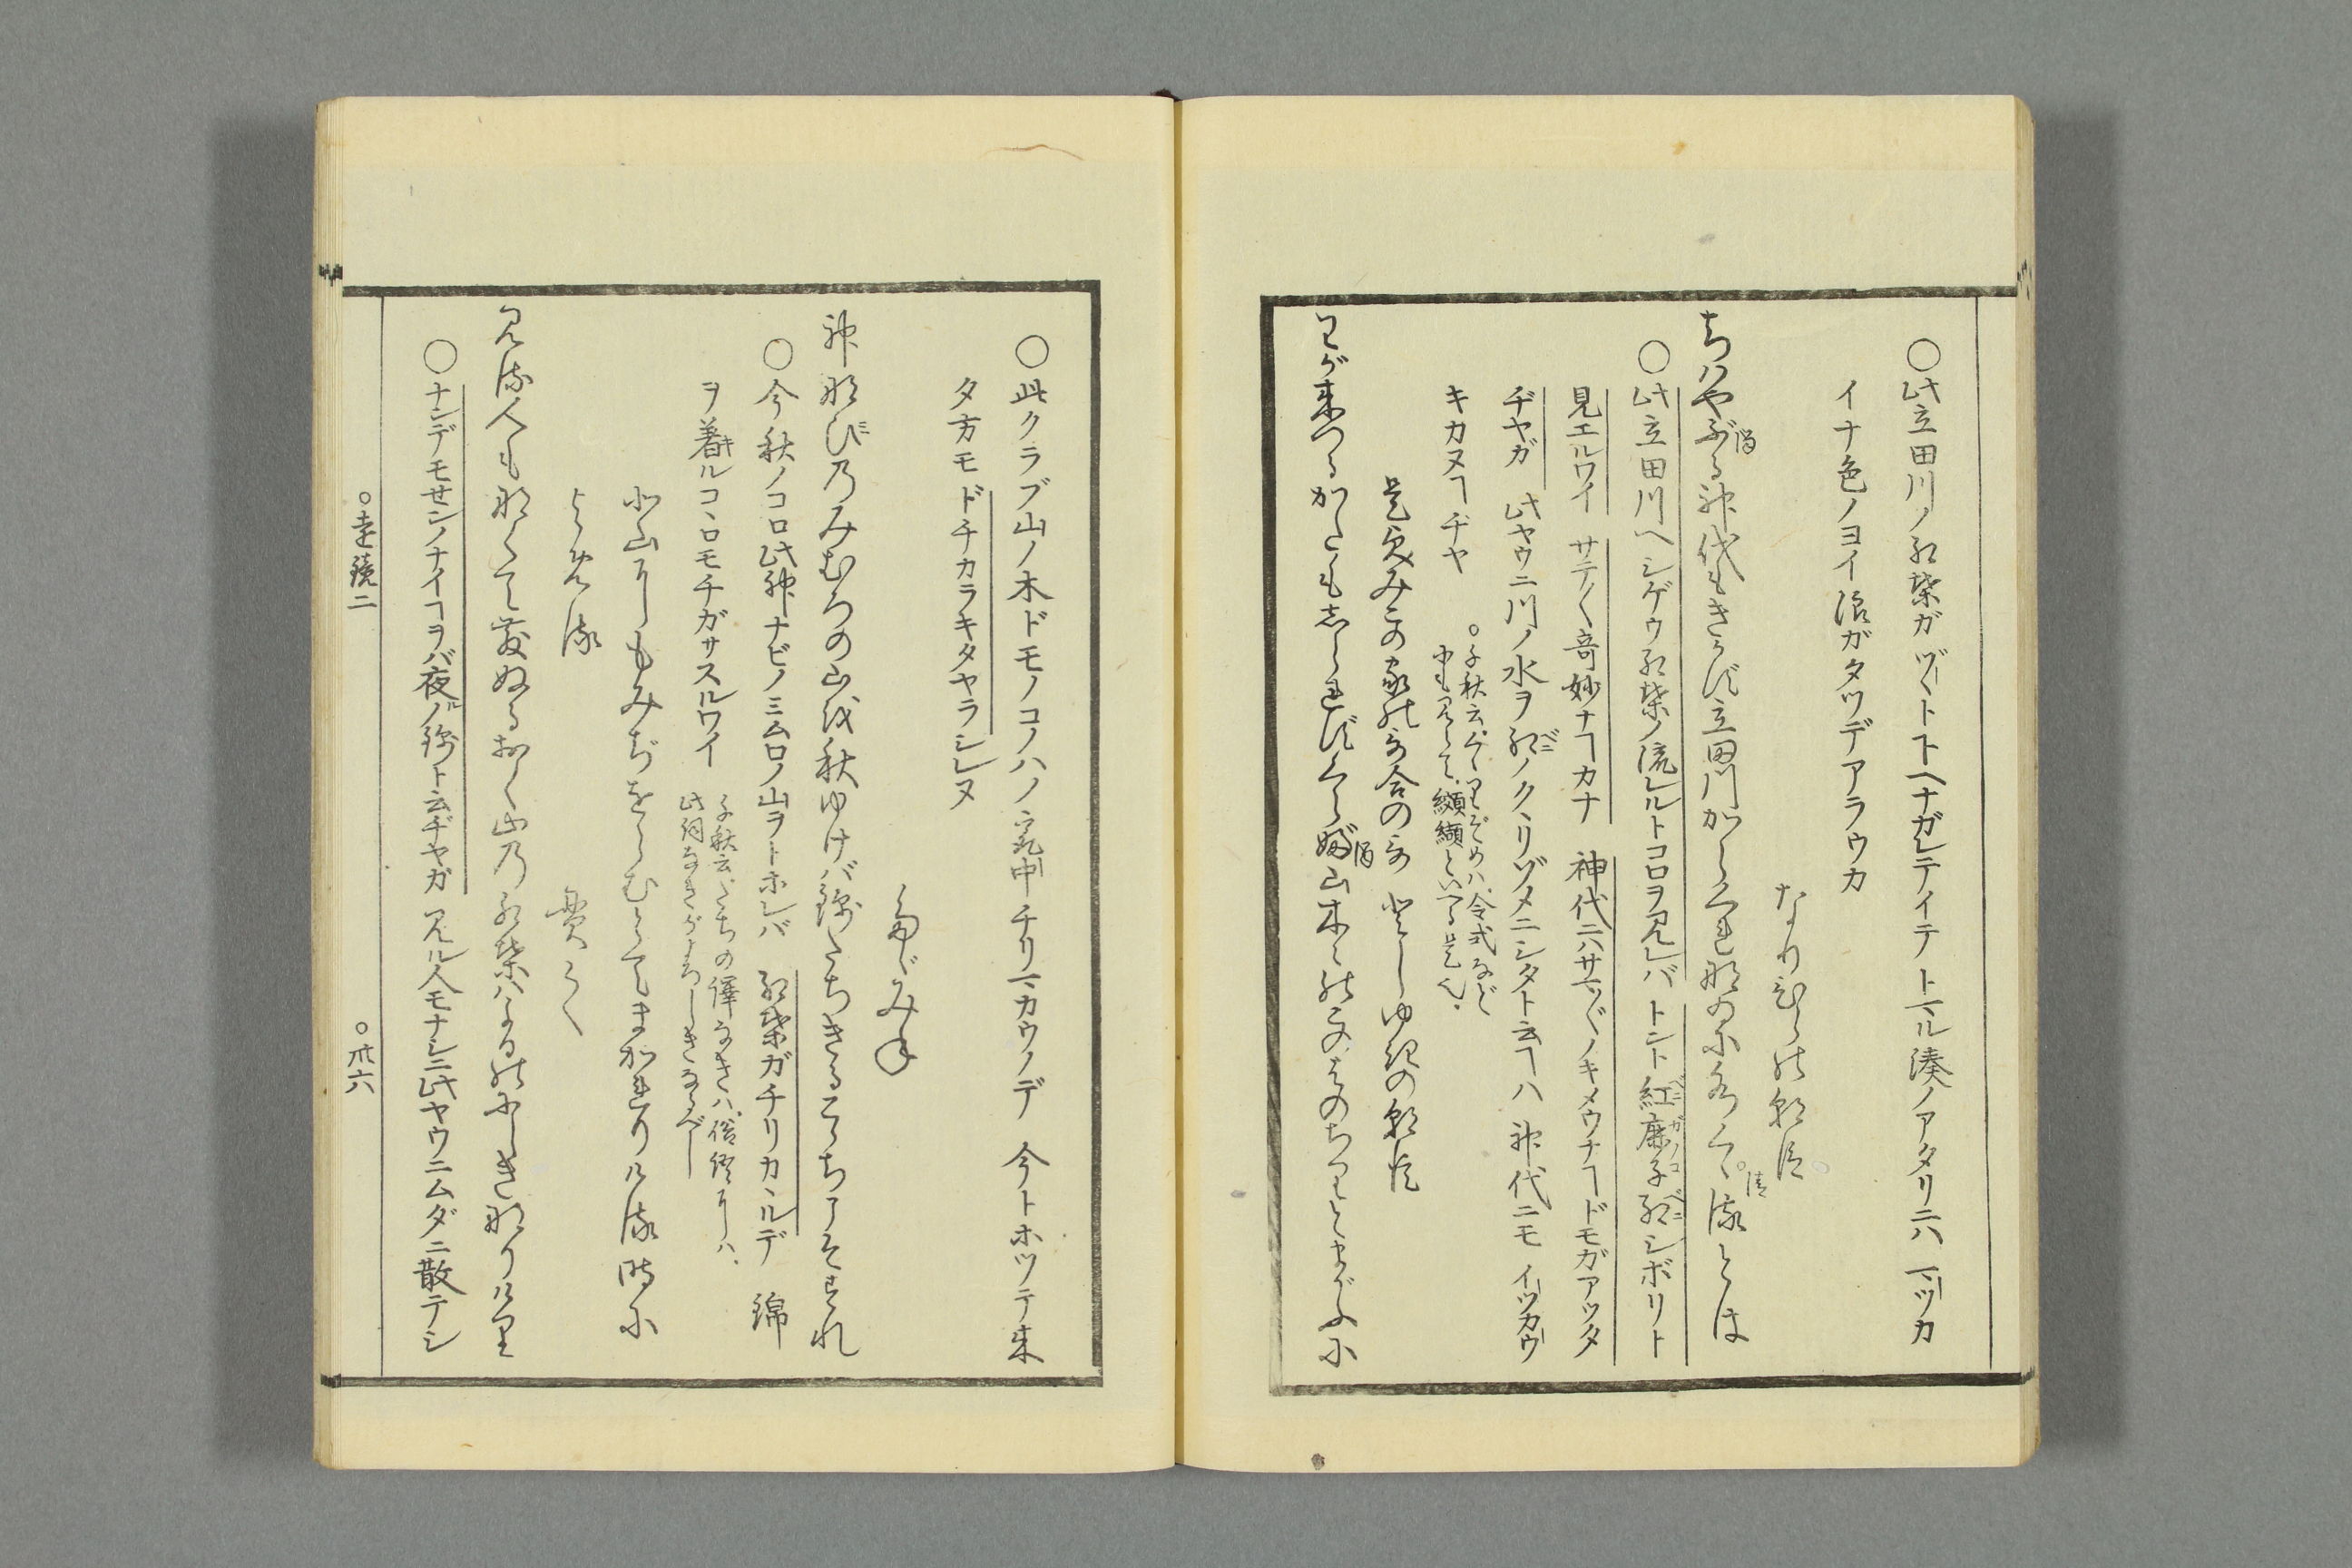 〇此立田川ノ紅葉ガヅヽトトヘナガレテイテトマル湊ノアタリニハマツカ
イナ色ノヨイ浪ガタツデアラウカ
なりひらの朝臣
ちはやぶる神代もきかず立田川からくれなゐに水くゝるとは
〇此立田川ヘシゲウ紅葉ノ流レルトコロヲ見レバトント紅鹿子紅シボリト
見エルワイサテ〱奇妙ナヿカナ神代ニハサマ〲ノキメウナヿドモガアツタ
ヂヤガ此ヤウニ川ノ水ヲ紅ノクヽリゾメニシタト云ヿハ神代ニモイツカウ
キカヌヿヂヤ
〇千秋云くゝりぞめハ令式など
にも見えて纐纈といへる是也
是貞みこの家の歌合のうた としゆきの朝臣
わが来つるかたもしられずくらぶ山木々のこのはのちるとまがふに
〇此クラブ山ノ木ドモノコノハノ空中チリマガウノデ今トホツテ来
タ方モドチカラキタヤラシレヌ
たゞみね
神なびのみむろの山を秋ゆけば錦たちきるこゝちこそすれ
〇今秋ノコロ此神ナビノミムロノ山ヲトホレバ紅葉ガチリカヽルデ錦
ヲ着ルコヽロモチガサスルワイ
千秋云たちの譯なきハ俗語にハ
此詞なきがよろしきなるべし
北山にもみぢをらむとてまかれりける時に
よめる
貫之
見る人もなくて散ぬるおく山の紅葉はよるのにしきなりけり
〇ナンデモセンノナイヿヲバ夜ルノ錦ト云ヂヤガ見ル人モナシニ此ヤウニムダニ散テシ
〇遠鏡二
〇卅六